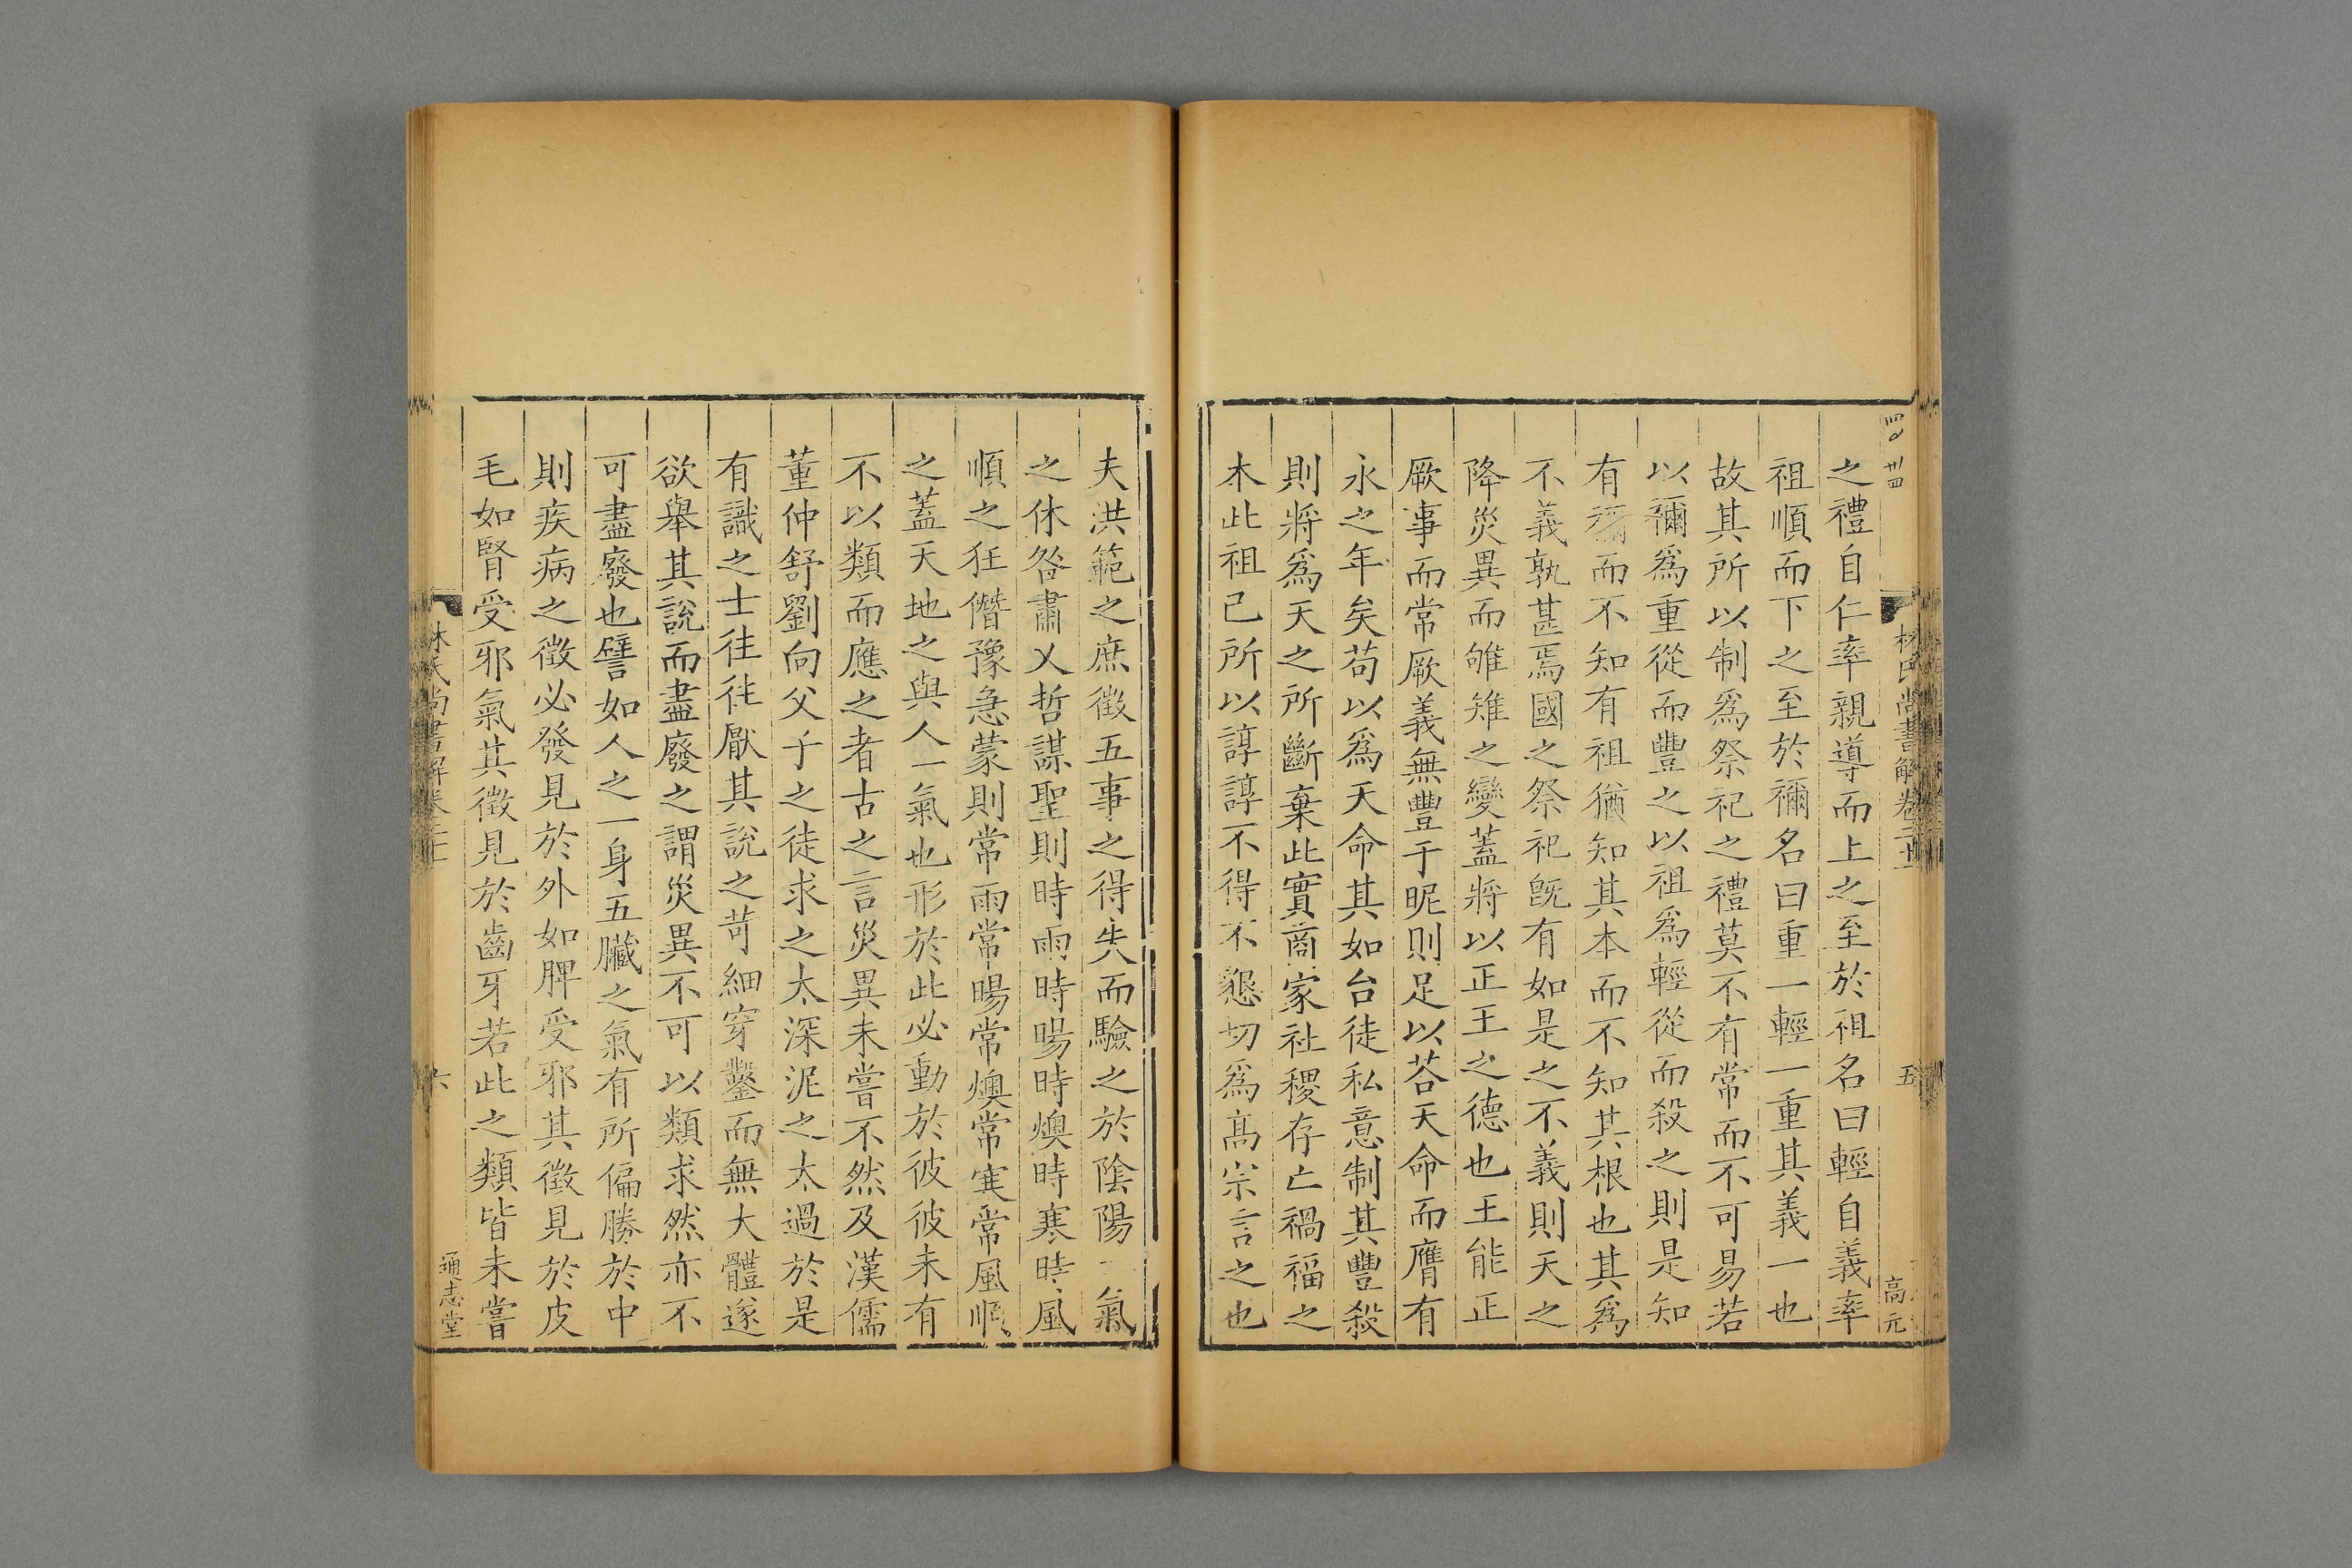 林氏尚書解卷二十一
五
高元
之禮自仁率親導而上之至於祖名曰輕自義率
祖順而下之至於禰名曰重一輕一重其義一也
故其所以制爲祭祀之禮莫不有常而不可易若
以禰爲重從而豐之以祖爲輕從而殺之則是知
有禰而不知有祖猶知其本而不知其根也其爲
不義孰甚焉國之祭祀旣有如是之不義則天之
降災異而雊雉之變蓋將以正王之德也王能正
厥事而常厥義無豐于昵則足以荅天命而膺有
永之年矣苟以爲天命其如台徒私意制其豐殺
則將爲天之所斷棄此實商家社稷存亡禍福之
木此祖己所以諄諄不得不懇切爲高宗言之也
夫洪範之庶徵五事之得失而驗之於陰陽一氣
之休咎肅乂哲謀聖則時雨時暘時燠時寒時風
順之狂僭豫急蒙則常雨常暘常燠常寒常風順
之蓋天地之與人一氣也形於此必動於彼彼未有
不以類而應之者古之言災異未嘗不然及漢儒
董仲舒劉向父子之徒求之太深泥之太過於是
有識之士往往厭其說之苛細穿鑿而無大體遂
欲舉其說而盡廢之謂災異不可以類求然亦不
可盡廢也譬如人之一身五臟之氣有所偏勝於中
則疾病之徵必發見於外如脾受邪其徵見於皮
毛如腎受邪氣其徵見於齒牙若此之類皆未嘗
林氏尚書解卷二十一
六
通志堂